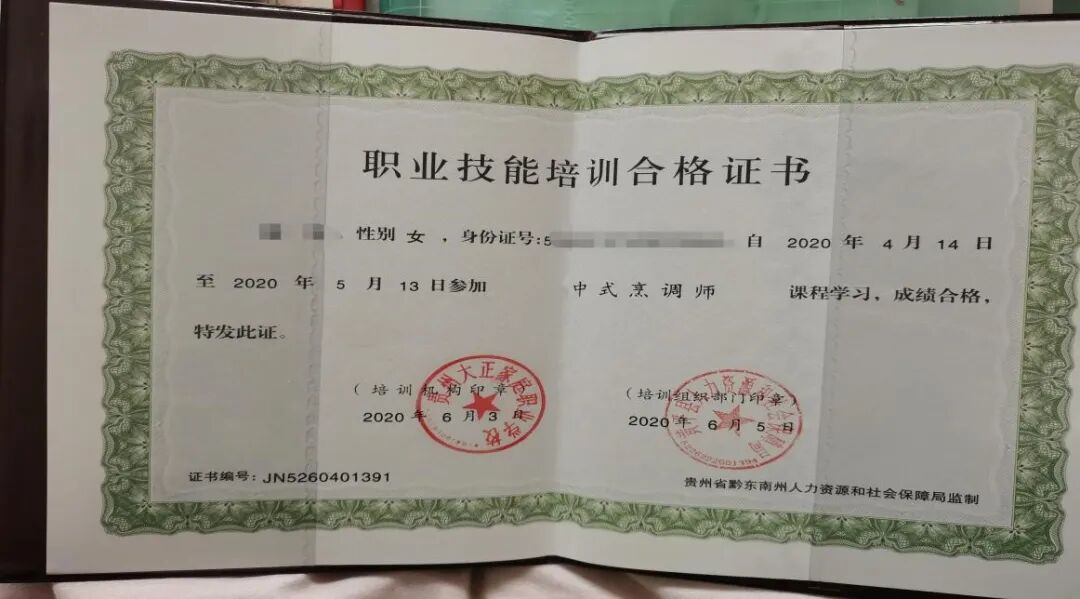 职业技能培训合格证书
性别 女 ，身份证号:5 自 2020 年 4 月 14 日
至 2020 年 5 月 13 日参加 中式烹调师 课程学习，成绩合格，
特发此证。
（培训机构印章）
2020 年 6 月 3 日
贵州大正家庭职业学校
（培训组织部门印章）
2020 年 6 月 5 日
证书编号：JN5260401391
贵州省黔东南州人力资源和社会保障局监制